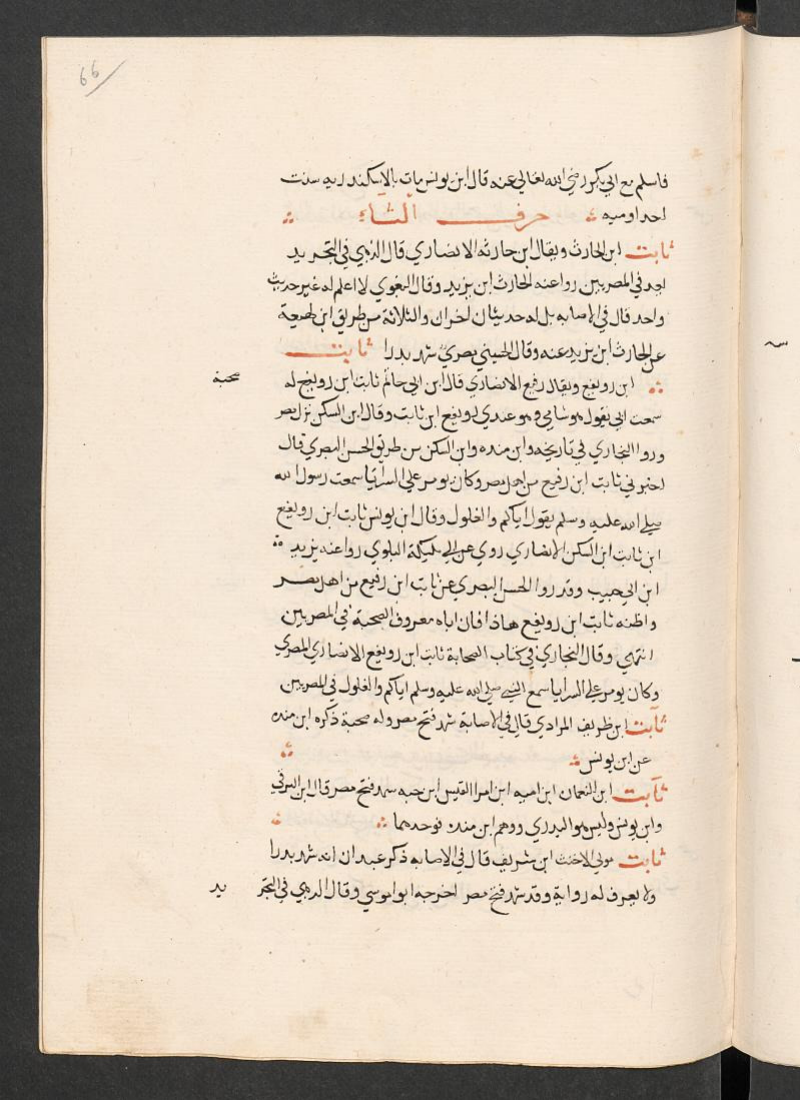 66
فاسلم مع ابي بكر رضي الله تعالي عنه قال ابن يونس مات بالاسكندريه سنت
احد اوميه حرف الثاء
ثابت ابن الحارث ويقال ابن حارثه الانصاري قال الذهبي في التجريد
احد في المصريين روا عنه الحارث ابن يزيد وقال البغوي لا اعلم له غير حديث
واحد قال في الاصابه بل له حديثان اخران والثلاثة من طريق ابن لهيعة
عن الحارث ابن يزيد عنه وقال الحسيني مصري شهد بدرا ثابت
ابن رويفع ويقال رفيع الانصاري قال ابن ابي حاتم ثابت ابن رويفع له صحبة
سمعت ابي يقول هو شامي وهو عندي رويفع ابن ثابت وقال ابن السكن نزل مصر
وروا البخاري في تاريخه وابن منده وابن السكن من طريق الحسن البصري قال
اخبرني ثابت ابن رفيع من اهل مصر وكان يومر علي السرايا سمعت رسول الله
صلي الله عليه وسلم يقول اياكم والغلول وقال ابن يونس ثابت ابن رويفع
ابن ثابت ابن السكن الانصاري روي عن ابي مليكة البلوي روا عنه يزيد
ابن ابي حبيب وقد روا الحسن البصري عن ثابت ابن رفيع من اهل مصر
واظنه ثابت ابن رويفع هاذا فان اباه معروف الصحبة في المصريين
انتهي وقال البخاري في كتاب الصحابة ثابت ابن رويفع الانصاري المصري
وكان يومر علي السرايا سمع النبي صلي الله عليه وسلم اياكم والغلول في المصريين
ثابت ابن طريف المرادي قال في الاصابة شهد فتح مصر وله صحبة ذكره ابن منده
عن ابن يونس
ثابت ابن النعمان ابن اميه ابن امرا القيس ابن حبه شهد فتح مصر قال ابن البرقي
وابن يونس وليس هو البدري ووهم ابن منده فوحدهما
ثابت مولي الاخنث ابن شريف قال في الاصابه ذكر عبدان انه شهد بدرا
ولا يعرف له رواية وقد شهد فتح مصر اخرجه ابو موسي وقال الذهبي في التجر يد